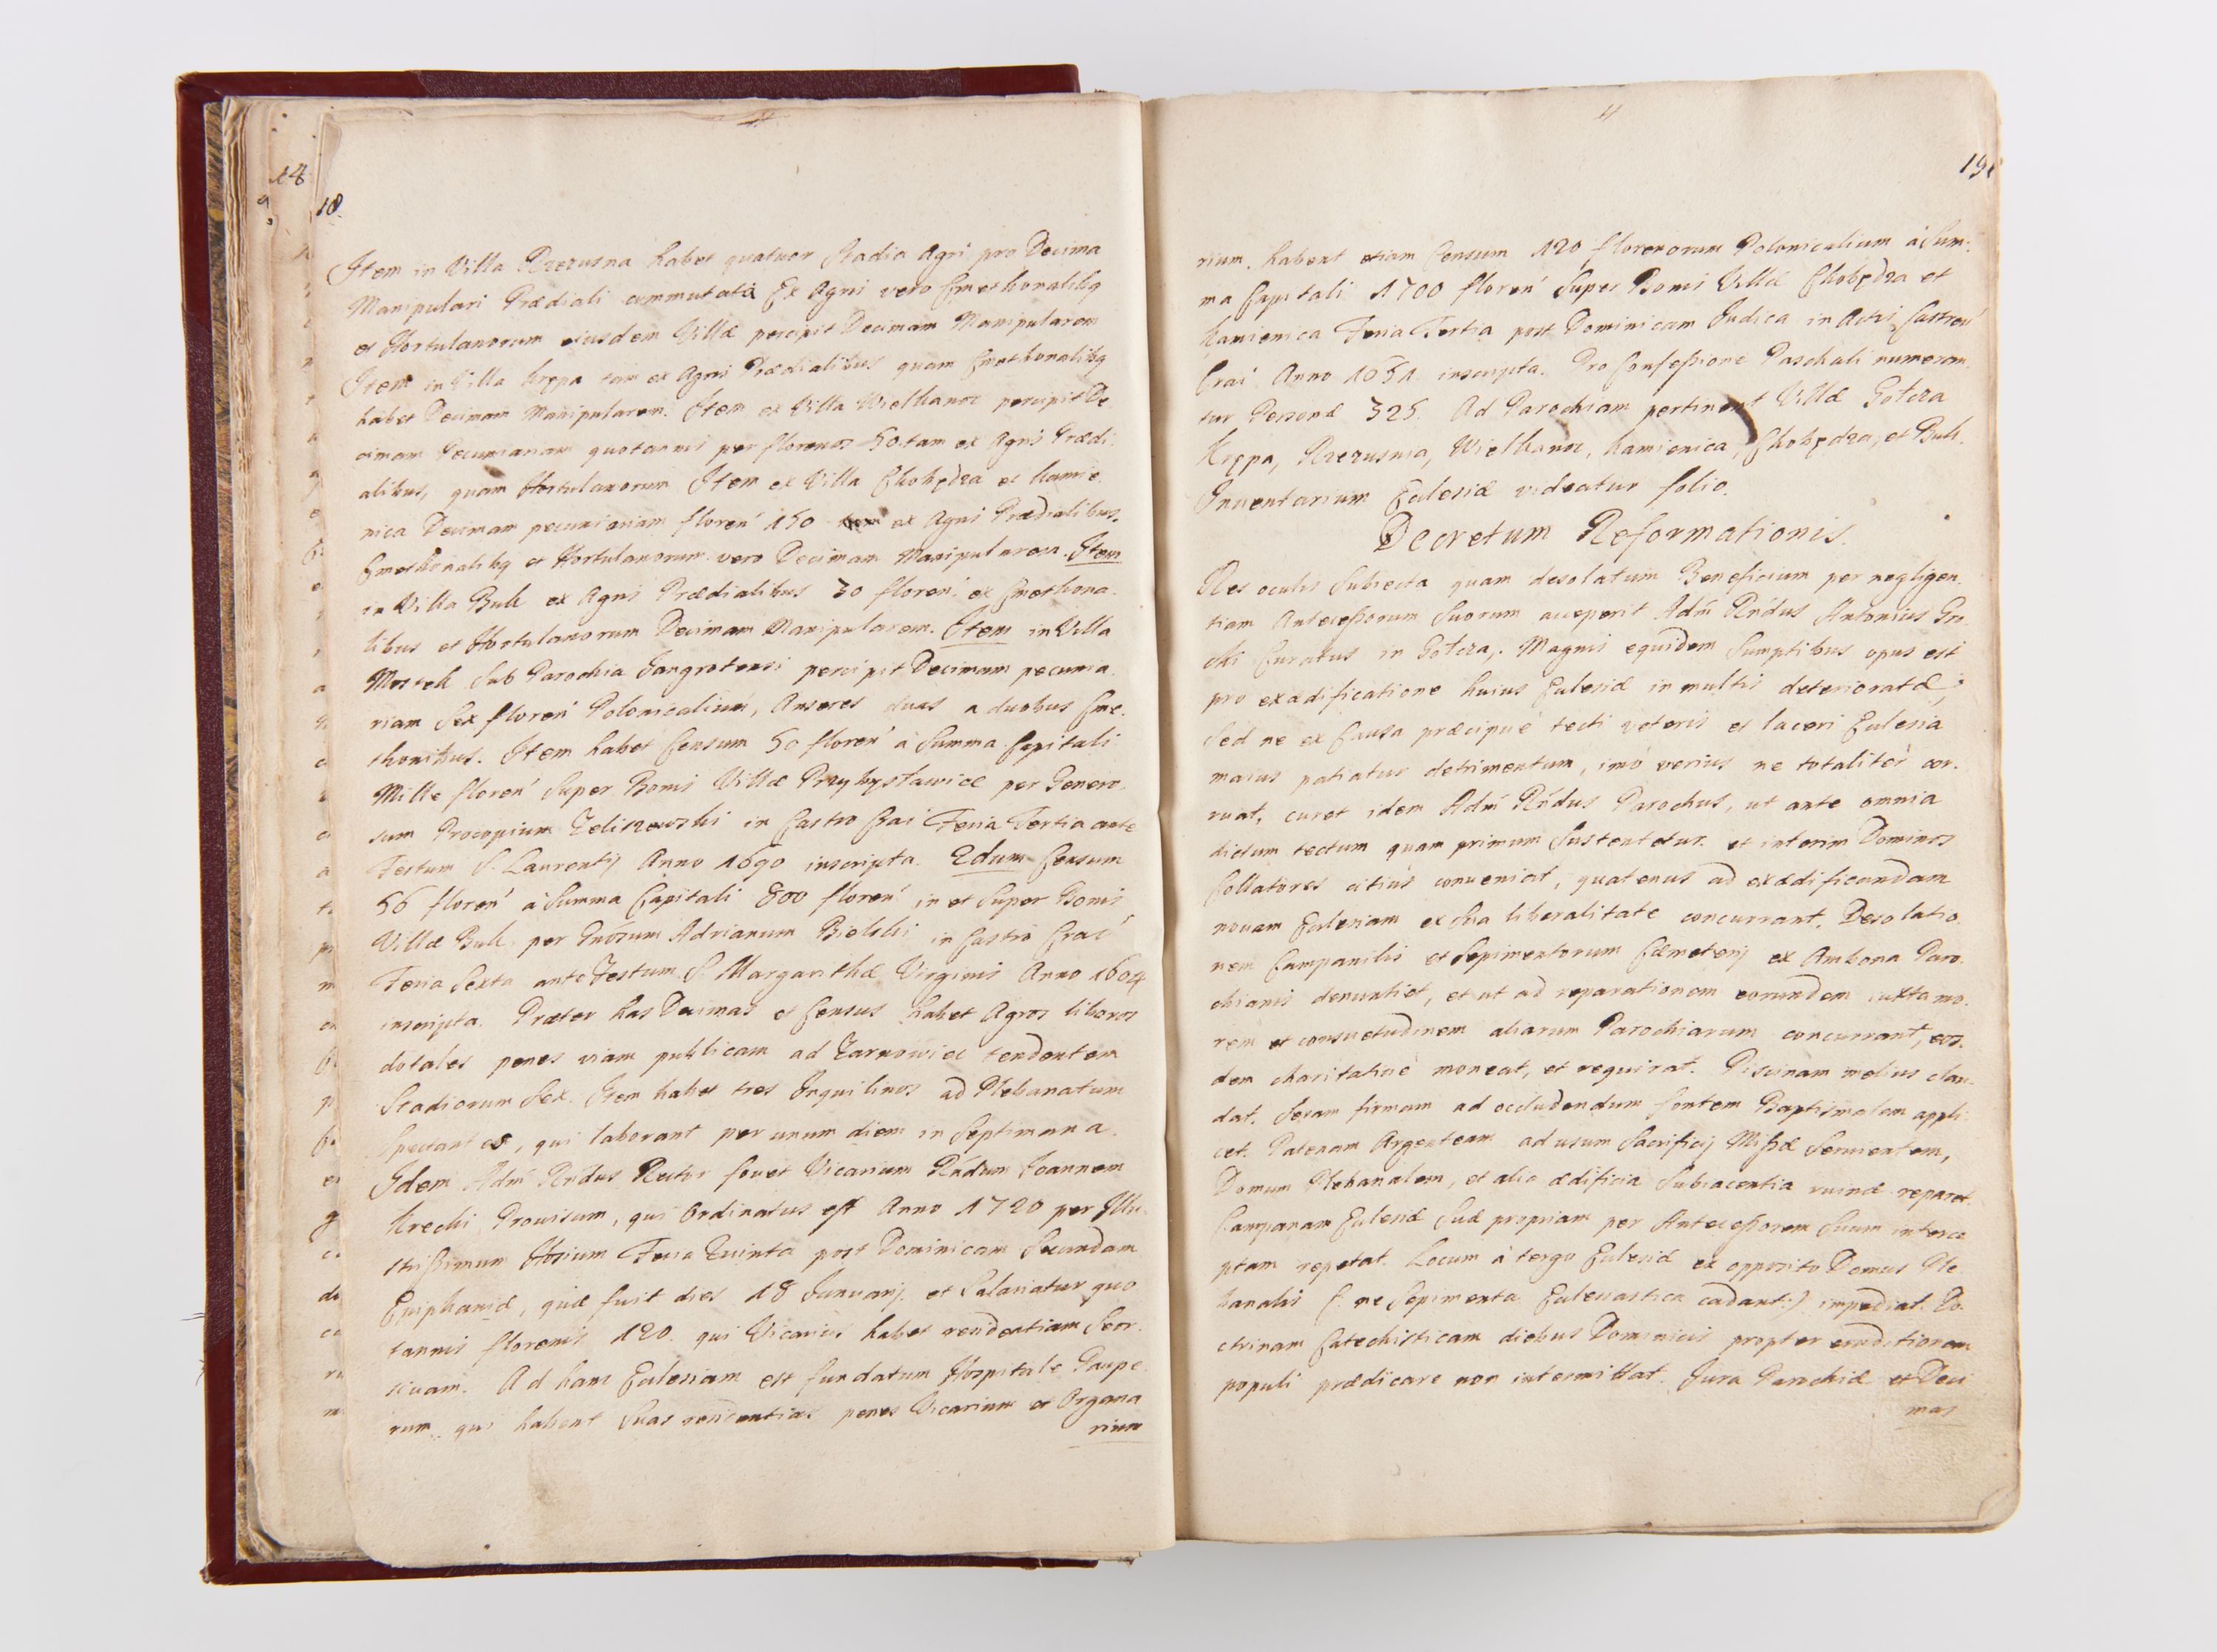 18.
Item in Villa Rzezusna habet quatuor Stadia Agri pro Decima
Manipulari Prædiali commutata Ex Agris vero Cmethonalibq
et Hortulanorum eiusdem Villæ percipit Decimam Manipularem
Item in Villa Krępa tam ex Agris Prædialibus quam Cmethonalibq
habet Decimam Manipularem. Item ex Villa Wielkanoc percipit De
cimam Pecuniariam quotannis per florenos 50. tam ex Agris Prædi
alibus, quam Hortulanorum Item ex Villa Chobędza et Kamie
nica Decimam pecuniariam floren 150 ex Agris Prædialibus.
Cmethonalibq et Hortulanorum vero Decimam Manipularem. Item
in Villa Buk ex Agris Prædialibus 30 floren. ex Cmethona
libus et Hortulanorum Decimam Manipularem. Item in Villa
Mostek Sub Parochia Jangrotensi percipit Decimam pecunia
riam Sex floren Polonicalium, Anseres duas a duobus Cme.
thonibus. Item habet Censum 50 floren à Summa Capitali
Mille floren Super Bonis Villæ Przybysławice per Genero.
sum Procopium Zeliszewski in Castro Crac Feria Tertia ante
Festum S. Laurentij Anno 1690 inscripta. Idum Censum
56 floren à Summa Capitali 800 floren in et Super Bonis
Villæ Buk per Gnosum Adrianum Bielski in Castro Crac
Feria Sexta ante Festum S. Margarithæ Virginis Anno 1604
inscripta. Præter has Decimas et Census habet Agros liberos
dotales penes viam publicam ad Tarnowice tendentem
Stadiorum Sex. Item habet tres Inquilinos ad Plebanatum
Spectantes, qui laborant per unum diem in Septimana.
Idem Adm Rndus Rector fovet Vicarium Rndum Joannem
Krechi Provisum, qui Ordinatus est Anno 1720 per Illu
strissimum Feria Quinta post Dominicam Secundam
Epiphaniæ, quæ fuit dies 18 Januarij. et Salariatur quo
tannis florenis 120. qui Vicarius habet residentiam Seor.
sivam. Ad hanc Eclesiam est fundatum Hospitale Paupe
rum, qui habent Suas residentias penes Vicarium et Organa
rium
19
rium. habent etiam Censum 120 florenorum Polonicalium à Sum
ma Capitali 1700 floren Super Bonis Villæ Chobędza et
Kamienica Feria Tertia post Dominicam Judica in Actis Castren
Crac Anno 1651. inscripta. Pro Confessione Paschali numeran
tur Personæ 325. Ad Parochiam pertinent Villæ Gołcza
Krępa, Rzezusnia, Wielkanoc, Kamienica, Chobędza, et Buk.
Inventarium Eclesiæ videatur folio.
Decretum Reformationis.
Res oculis Subiecta quam desolatum Beneficium per negligen.
tiam Antecessorum Suorum acceperit Adm Rndus Antonius Gro
ski Curatus in Gołcza. Magnis equidem Sumptibus opus est
pro exædificatione huius Eclesiæ in multis deterioratæ,
Sed ne ex Causa præcipuè tecti veteris et laceri Eclesia
maius patiatur detrimentum, imò verius ne totalitèr cor.
ruat, curet idem Adm Rndus Parochus, ut ante omnia
dictum tectum quam primum Sustentetur et interim Dominos
Collatores citius conveniat, quatenus ad exædificandam
novam Eclesiam ex Sua liberalitate concurrant. Desolatio
nem Campanilis et Sepimentorum Cæmeterij ex Ambona Paro.
chianis denuntiet, et ut ad reparationem eorundem iuxta mo.
rem et consuetudinem aliarum Parochiarum concurrant, eos.
dem charitativè moneat, et requirat. Piscinam melius clau
dat. Seram firmam ad occludendum fontem Baptismalem appli
cet. Patenam Argenteam ad usum Sacrificij Missæ Servientem,
Domum Plebanalem, et alia ædificia Subiacentia ruinæ reparet
Campanam Eclesiæ Suæ propriam per Antecessorem Suum interce
ptam repetat. Locum à tergo Eclesiæ ex opposito Domus Ple
banalis (: ne Sepimenta Eclesiastica cadant :) impediat. Do
ctrinam Catechisticam diebus Dominicis propter eruditionem
populi prædicare non intermittat. Jura Parochiæ et Deci
mas